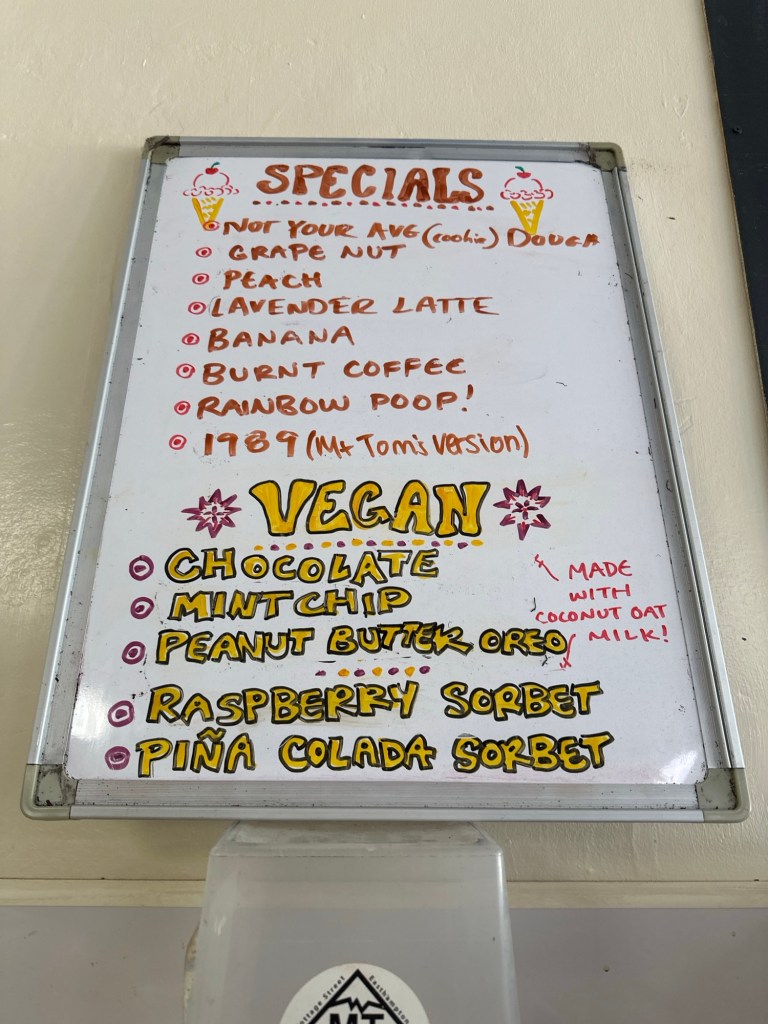 SPECIALS
NOT YOUR AVG (cookie) DOUGH
GRAPE NUT
PEACH
LAVENDER LATTE
BANANA
BURNT COFFEE
RAINBOW POOP!
1989 (Mt Tom's Version)
VEGAN
CHOCOLATE
MINT CHIP
PEANUT BUTTER OREO
MADE
WITH
COCONUT OAT
MILK!
RASPBERRY SORBET
PIÑA COLADA SORBET
Cottage Street Easthampton
MT